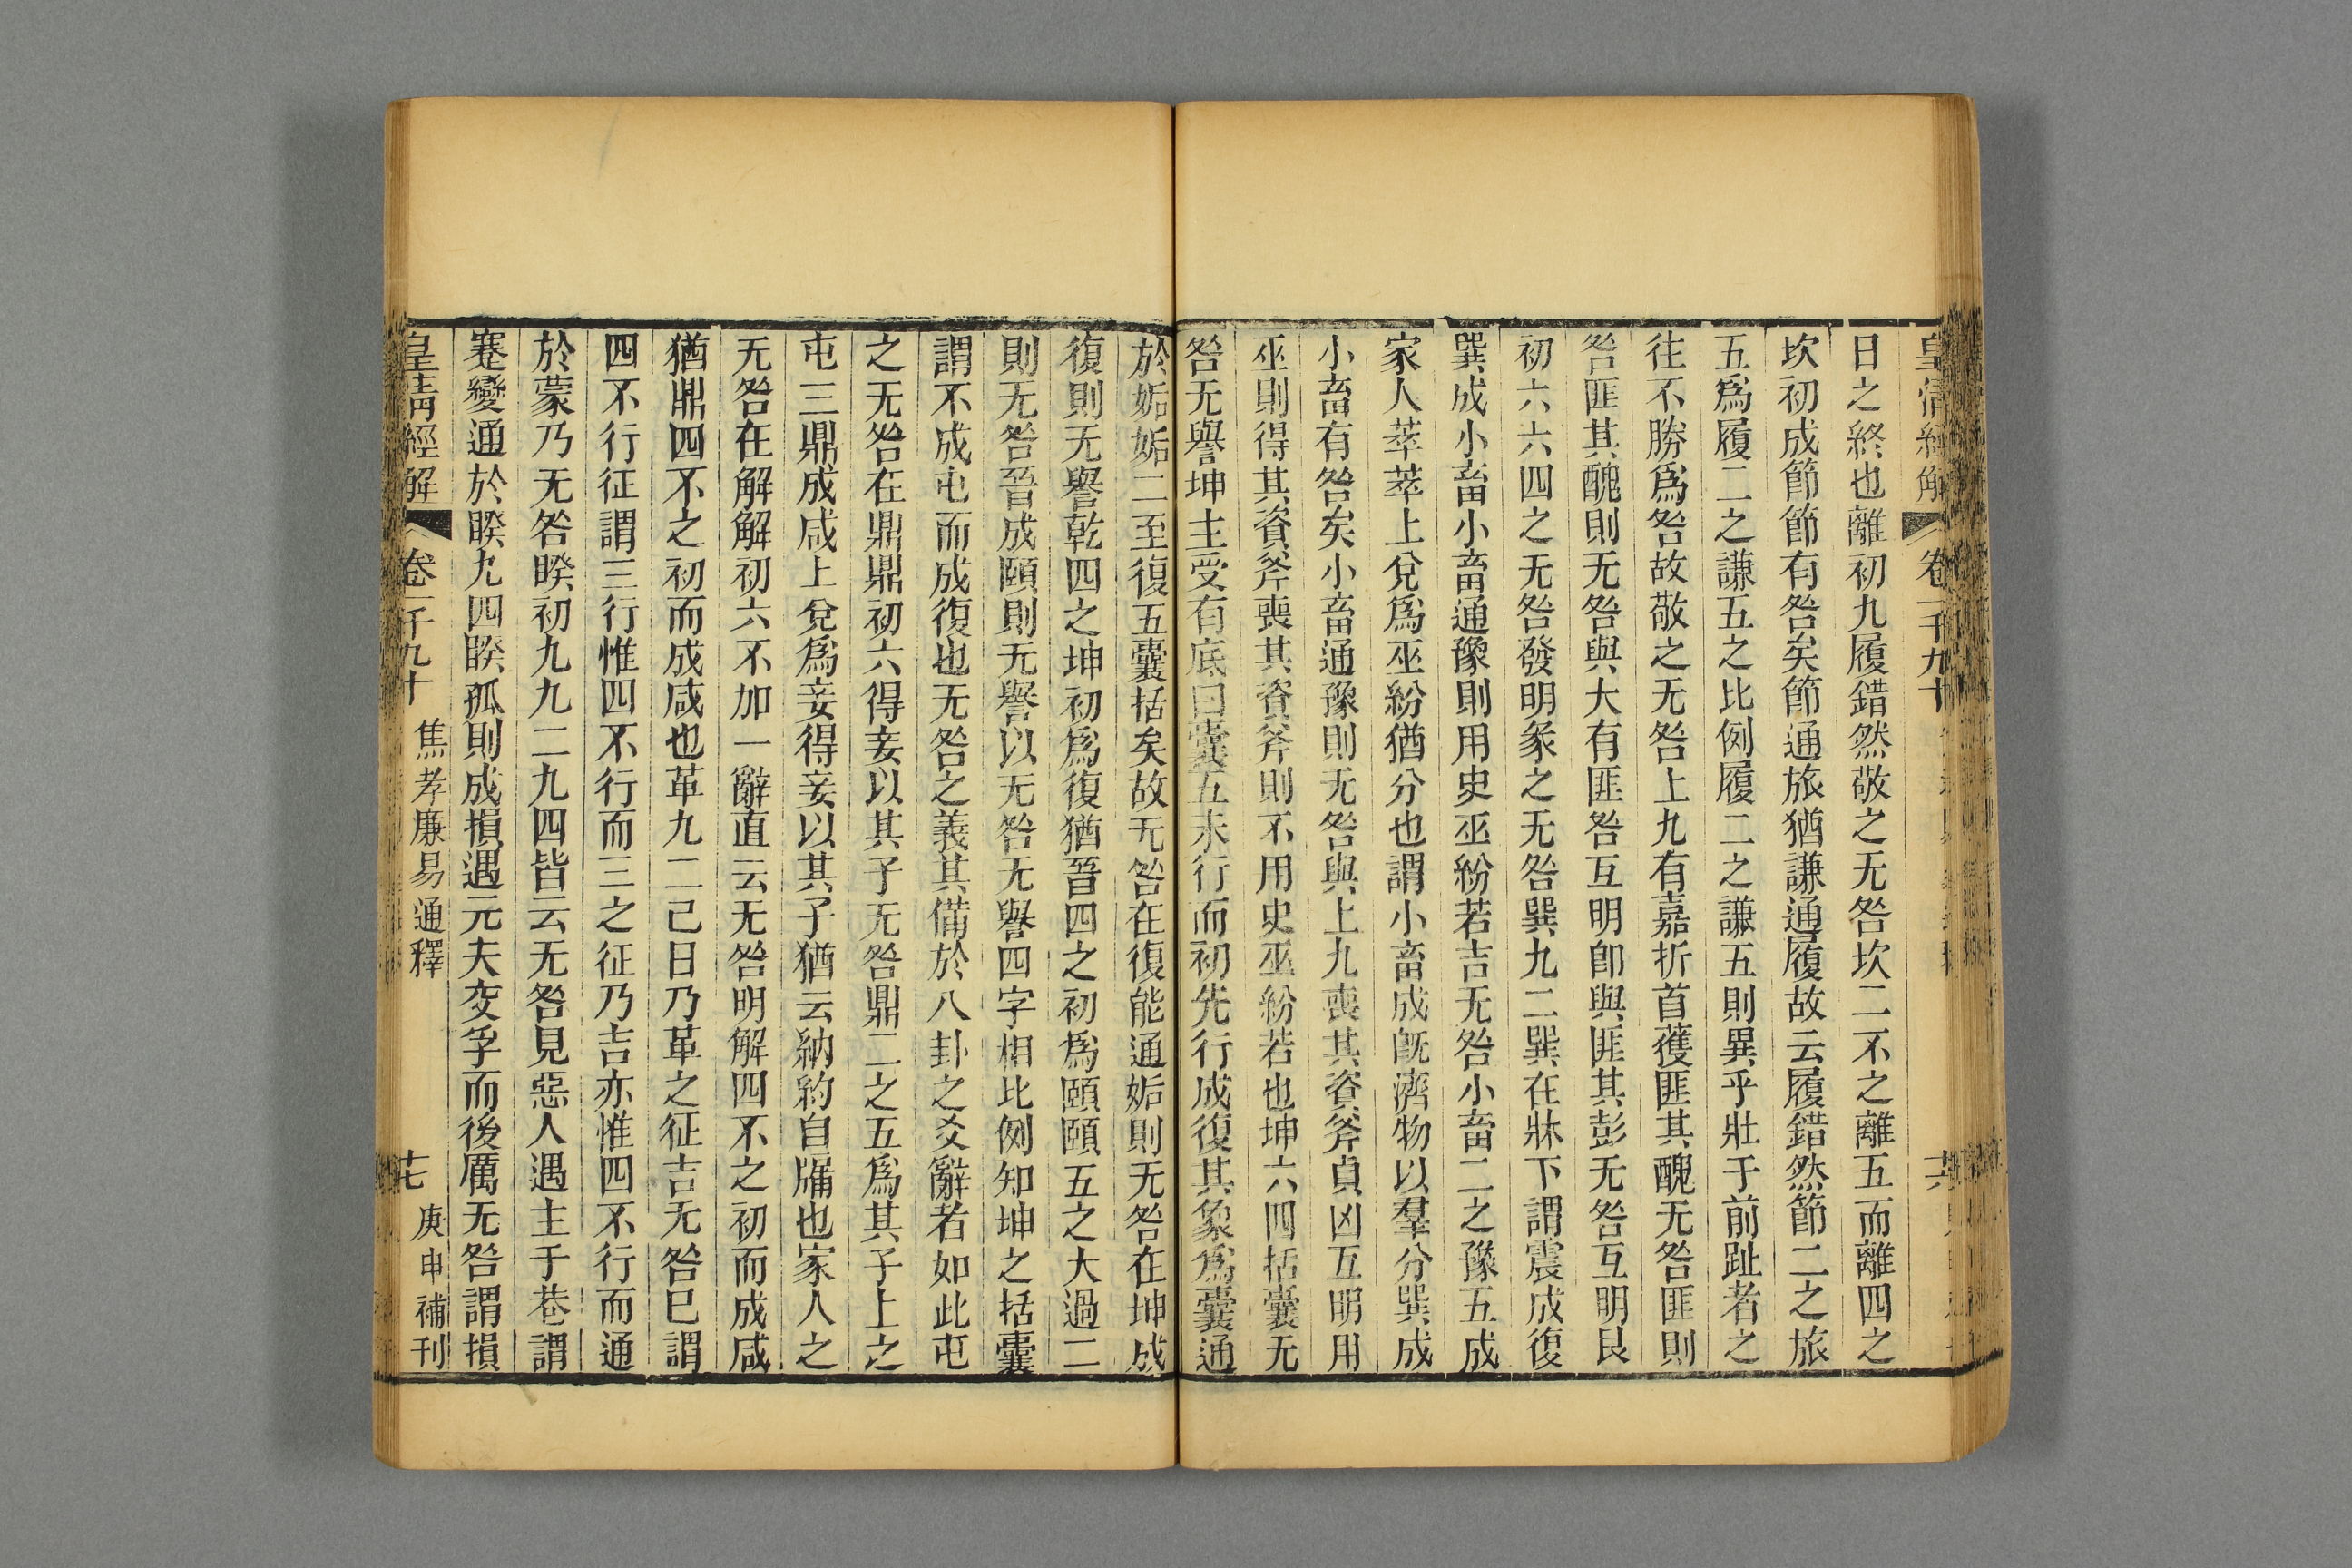 皇清經解 卷一千九十 十六
日之終也離初九履錯然敬之无咎坎二不之離五而離四之
坎初成節節有咎矣節通旅猶謙通履故云履錯然節二之旅
五爲履二之謙五之比例履二之謙五則異乎壯于前趾者之
往不勝爲咎故敬之无咎上九有嘉折首獲匪其醜无咎匪則
咎匪其醜則无咎與大有匪咎互明卽與匪其彭无咎互明艮
初六六四之无咎發明彖之无咎巽九二巽在牀下謂震成復
巽成小畜小畜通豫則用史巫紛若吉无咎小畜二之豫五成
家人萃萃上兌爲巫紛猶分也謂小畜成旣濟物以羣分巽成
小畜有咎矣小畜通豫則无咎與上九喪其資斧貞凶互明用
巫則得其資斧喪其資斧則不用史巫紛若也坤六四括囊无
咎无譽坤主受有底曰囊五未行而初先行成復其象爲囊通
於姤姤二至復五囊括矣故无咎在復能通姤則无咎在坤成
復則无譽乾四之坤初爲復猶晉四之初爲頤頤五之大過二
則无咎晉成頤則无譽以无咎无譽四字相比例知坤之括囊
謂不成屯而成復也无咎之義其備於八卦之爻辭者如此屯
之无咎在鼎鼎初六得妾以其子无咎鼎二之五爲其子上之
屯三鼎成咸上兌爲妾得妾以其子猶云納約自牖也家人之
无咎在解解初六不加一辭直云无咎明解四不之初而成咸
猶鼎四不之初而成咸也革九二己日乃革之征吉无咎巳謂
四不行征謂三行惟四不行而三之征乃吉亦惟四不行而通
於蒙乃无咎睽初九九二九四皆云无咎見惡人遇主于巷謂
蹇變通於睽九四睽孤則成損遇元夫交孚而後厲无咎謂損
皇清經解 卷一千九十 焦孝廉易通釋 十七 庚申補刊